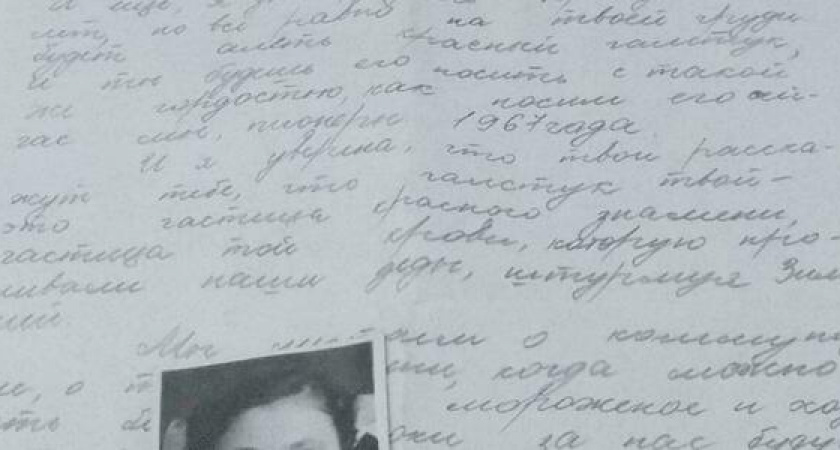 И еще, я
лет, но все равно на твоей груди
будет алеть красный галстук,
и ты будешь его носить с такой
же гордостью, как носим его сей-
час мы, пионеры 1967 года
И я уверена, что твои расска-
жут тебе, что галстук твой -
это частица красного знамени,
частица той крови, которую про-
ливали наши деды, штурмуя Зим
ний.
Мы о коммун
о когда можно
мороженое и хо
за нас буду